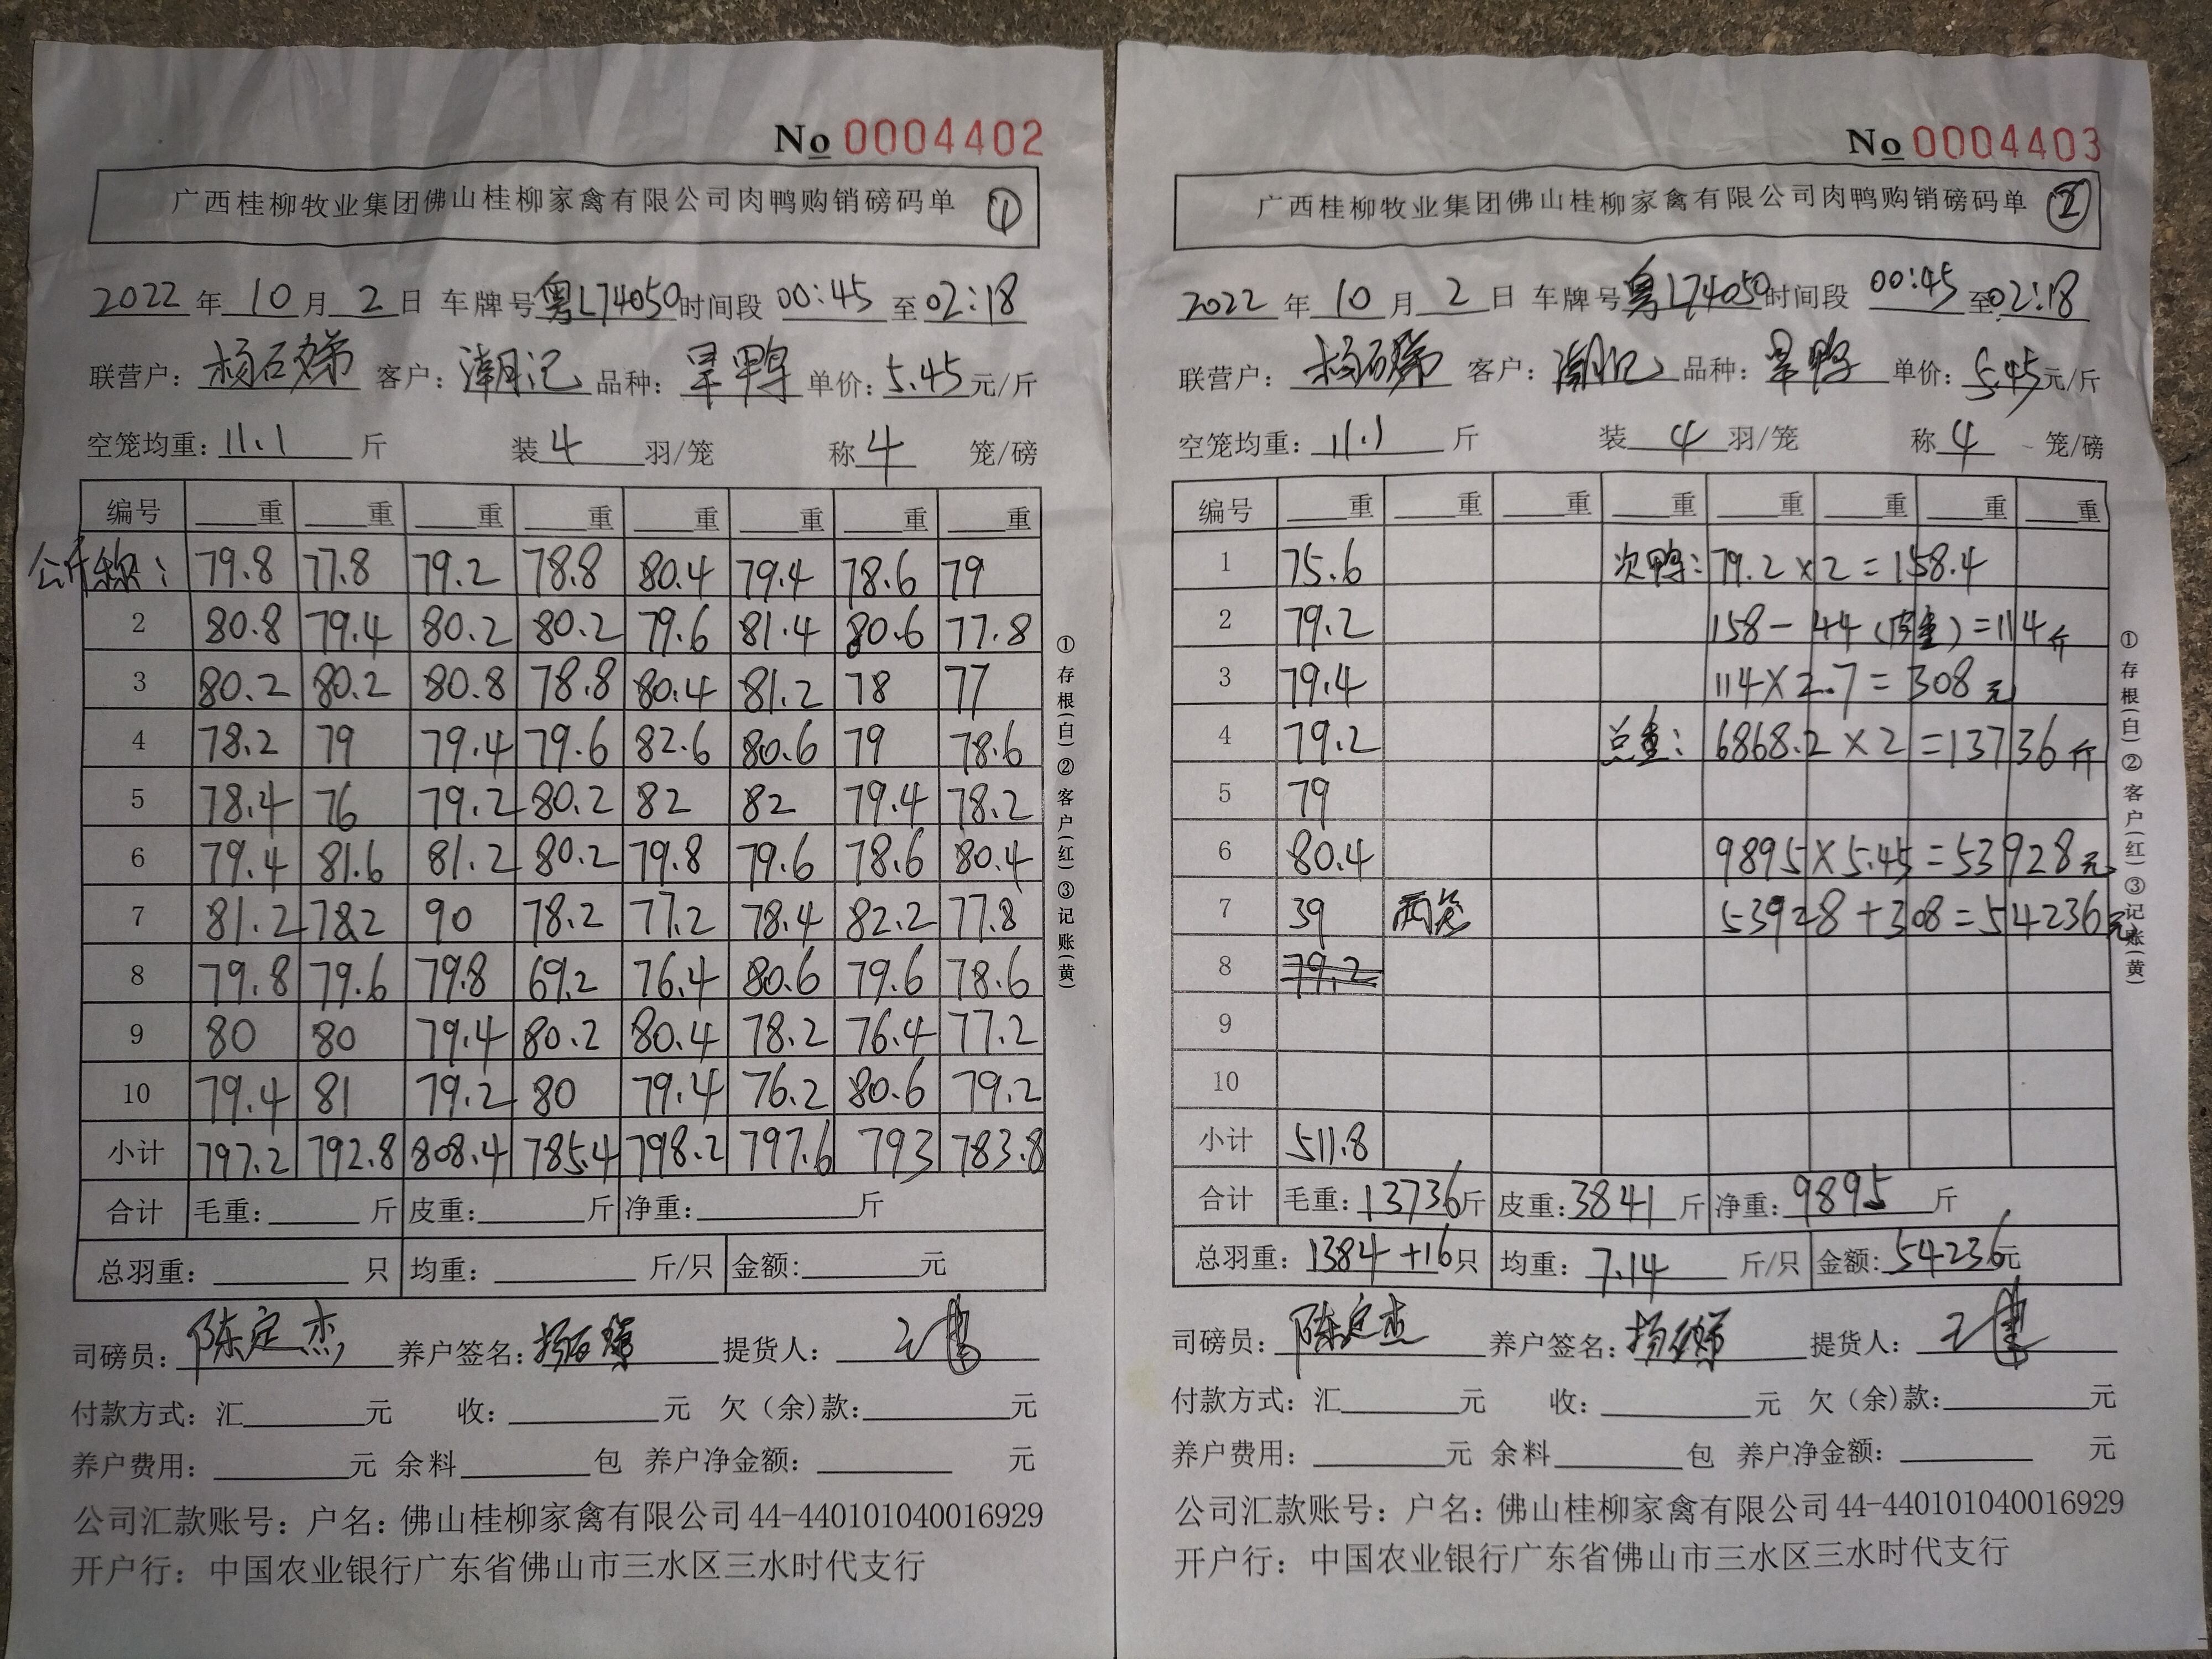 No 0004402
广西桂柳牧业集团佛山桂柳家禽有限公司肉鸭购销磅码单 ①
2022 年 10 月 2 日 车牌号 粤L74050 时间段 00:45 至 02:18
联营户: 杨石娣 客户: 潮记 品种: 旱鸭 单价: 5.45 元/斤
空笼均重: 11.1 斤 装 4 羽/笼 称 4 笼/磅
编号 重 重 重 重 重 重 重 重
公斤称: 79.8 77.8 79.2 78.8 80.4 79.4 78.6 79
2 80.8 79.4 80.2 80.2 79.6 81.4 80.6 77.8
3 80.2 80.2 80.8 78.8 80.4 81.2 78 77
4 78.2 79 79.4 79.6 82.6 80.6 79 78.6
5 78.4 76 79.2 80.2 82 82 79.4 78.2
6 79.4 81.6 81.2 80.2 79.8 79.6 78.6 80.4
7 81.2 78.2 90 78.2 77.2 78.4 82.2 77.8
8 79.8 79.6 79.8 69.2 76.4 80.6 79.6 78.6
9 80 80 79.4 80.2 80.4 78.2 76.4 77.2
10 79.4 81 79.2 80 79.4 76.2 80.6 79.2
小计 797.2 792.8 808.4 785.4 798.2 797.6 793 783.8
合计 毛重: 斤 皮重: 斤 净重: 斤
总羽重: 只 均重: 斤/只 金额: 元
司磅员: 陈定杰 养户签名: 杨石娣 提货人:
付款方式: 汇 元 收: 元 欠(余)款: 元
养户费用: 元 余料 包 养户净金额: 元
公司汇款账号: 户名: 佛山桂柳家禽有限公司 44-440101040016929
开户行: 中国农业银行广东省佛山市三水区三水时代支行
①存根(白)②客户(红)③记账(黄)
No 0004403
广西桂柳牧业集团佛山桂柳家禽有限公司肉鸭购销磅码单 ②
2022 年 10 月 2 日 车牌号 粤L74050 时间段 00:45 至 02:18
联营户: 杨石娣 客户: 潮记 品种: 旱鸭 单价: 5.45 元/斤
空笼均重: 11.1 斤 装 4 羽/笼 称 4 笼/磅
编号 重 重 重 重 重 重 重 重
1 75.6 次鸭: 79.2×2=158.4
2 79.2 158-44(皮重)=114斤
3 79.4 114×2.7=308元
4 79.2 总重: 6868.2×2=13736斤
5 79
6 80.4 9895×5.45=53928元
7 39 两笼 53928+308=54236元
8 79.2
9
10
小计 511.8
合计 毛重: 13736 斤 皮重: 3841 斤 净重: 9895 斤
总羽重: 1384+16 只 均重: 7.14 斤/只 金额: 54236元
司磅员: 陈定杰 养户签名: 杨石娣 提货人:
付款方式: 汇 元 收: 元 欠(余)款: 元
养户费用: 元 余料 包 养户净金额: 元
公司汇款账号: 户名: 佛山桂柳家禽有限公司 44-440101040016929
开户行: 中国农业银行广东省佛山市三水区三水时代支行
①存根(白)②客户(红)③记账(黄)